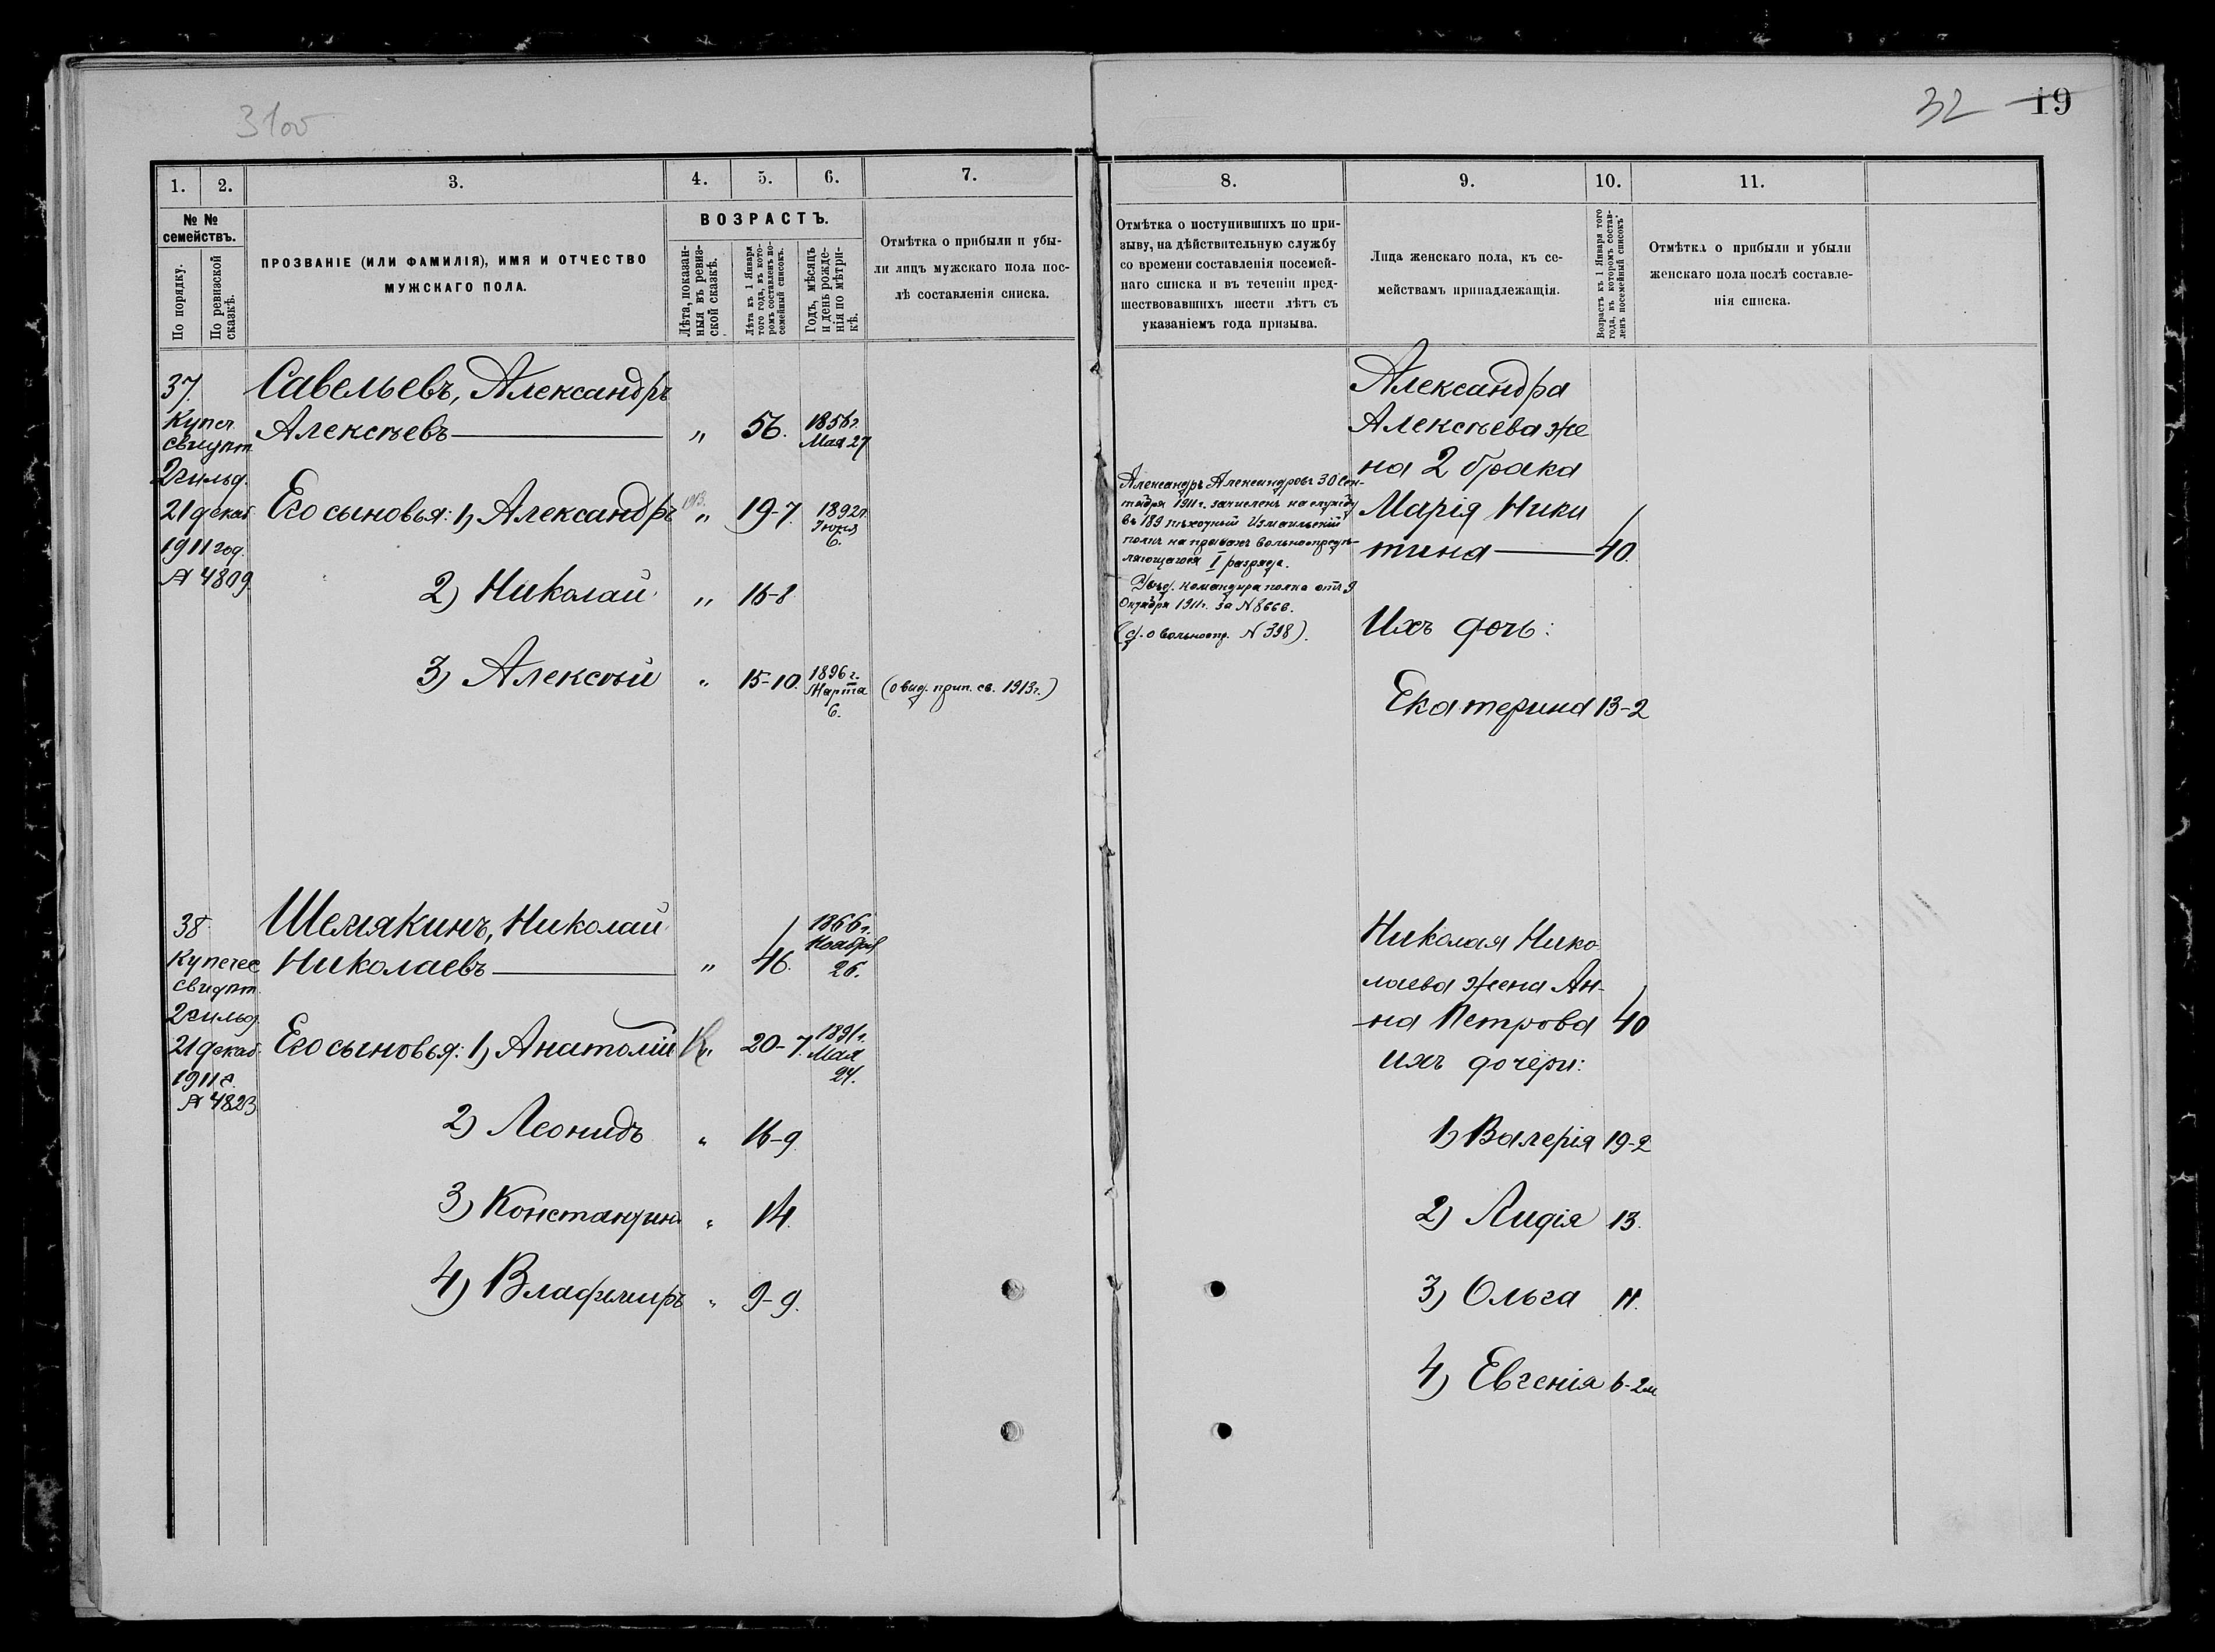 31об
32 19
1.
2.
3.
4.
5.
6.
7.
№ №
семействъ.
По порядку.
По ревизской
сказкѣ.
ПРОЗВАНІЕ (ИЛИ ФАМИЛІЯ), ИМЯ И ОТЧЕСТВО
МУЖСКАГО ПОЛА.
ВОЗРАСТЪ.
Лѣта, показан-
ныя въ ревиз-
ской сказкѣ.
Лѣта къ 1 Января
того года, въ кото-
ромъ составленъ по-
семейный списокъ.
Годъ, мѣсяцъ
и день рожде-
нія по метри-
кѣ.
Отмѣтка о прибыли и убы-
ли лицъ мужскаго пола пос-
лѣ составленія списка.
37.
Купеч.
свидѣт.
2 гильд.
21 декаб.
1911 год.
№ 4809
Савельевъ, Александръ
Алексѣевъ — „ 56. 1856 г.
Мая 27
Его сыновья: 1) Александръ 1913. „ 19-7. 1892 г.
Іюня
6.
2) Николай „ 16-8
3) Алексѣй „ 15-10. 1896 г.
Марта
6.
(о выд. прип. св. 1913 г.)
38
Купечес
свидѣт.
2 гильд.
21 декаб.
1911 г.
№ 4823
Шемякинъ, Николай
Николаевъ — „ 46. 1866 г.
Ноября
26.
Его сыновья: 1) Анатолій „ 20-7. 1891 г.
Мая
24.
2) Леонидъ „ 16-9
3) Константинъ „ 14.
4) Владимиръ „ 9-9.
8.
9.
10.
11.
Отмѣтка о поступившихъ по при-
зыву, на дѣйствительную службу
со времени составленія посемей-
наго списка и въ теченіи пред-
шествовавшихъ шести лѣтъ съ
указаніемъ года призыва.
Лица женскаго пола, къ се-
мействамъ принадлежащія.
Возрастъ къ 1 Января того
года, въ которомъ состав-
ленъ посемейный списокъ.
Отмѣтка о прибыли и убыли
женскаго пола послѣ составле-
нія списка.
Александръ Александровъ 30 Сен-
тября 1911 г. зачисленъ на службу
въ 189 пѣхотный Измаильскій
полкъ на правахъ вольноопредѣ-
ляющагося I разряда.
Увѣд. командира полка отъ 9
Октября 1911 г. за № 8666.
(д. о вольноопр. № 398).
Александра
Алексѣева же
на 2 брака
Марія Ники
тина — 40.
Ихъ дочь:
Екатерина 13-2
Николая Нико
лаева жена Ан-
на Петрова 40
ихъ дочери:
1) Валерія 19-2
2) Лидія 13.
3) Ольга 11.
4) Евгенія 6-2м